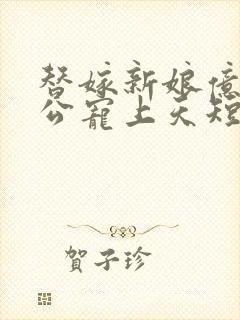 替嫁新娘億
公寵上天短
賀子珍